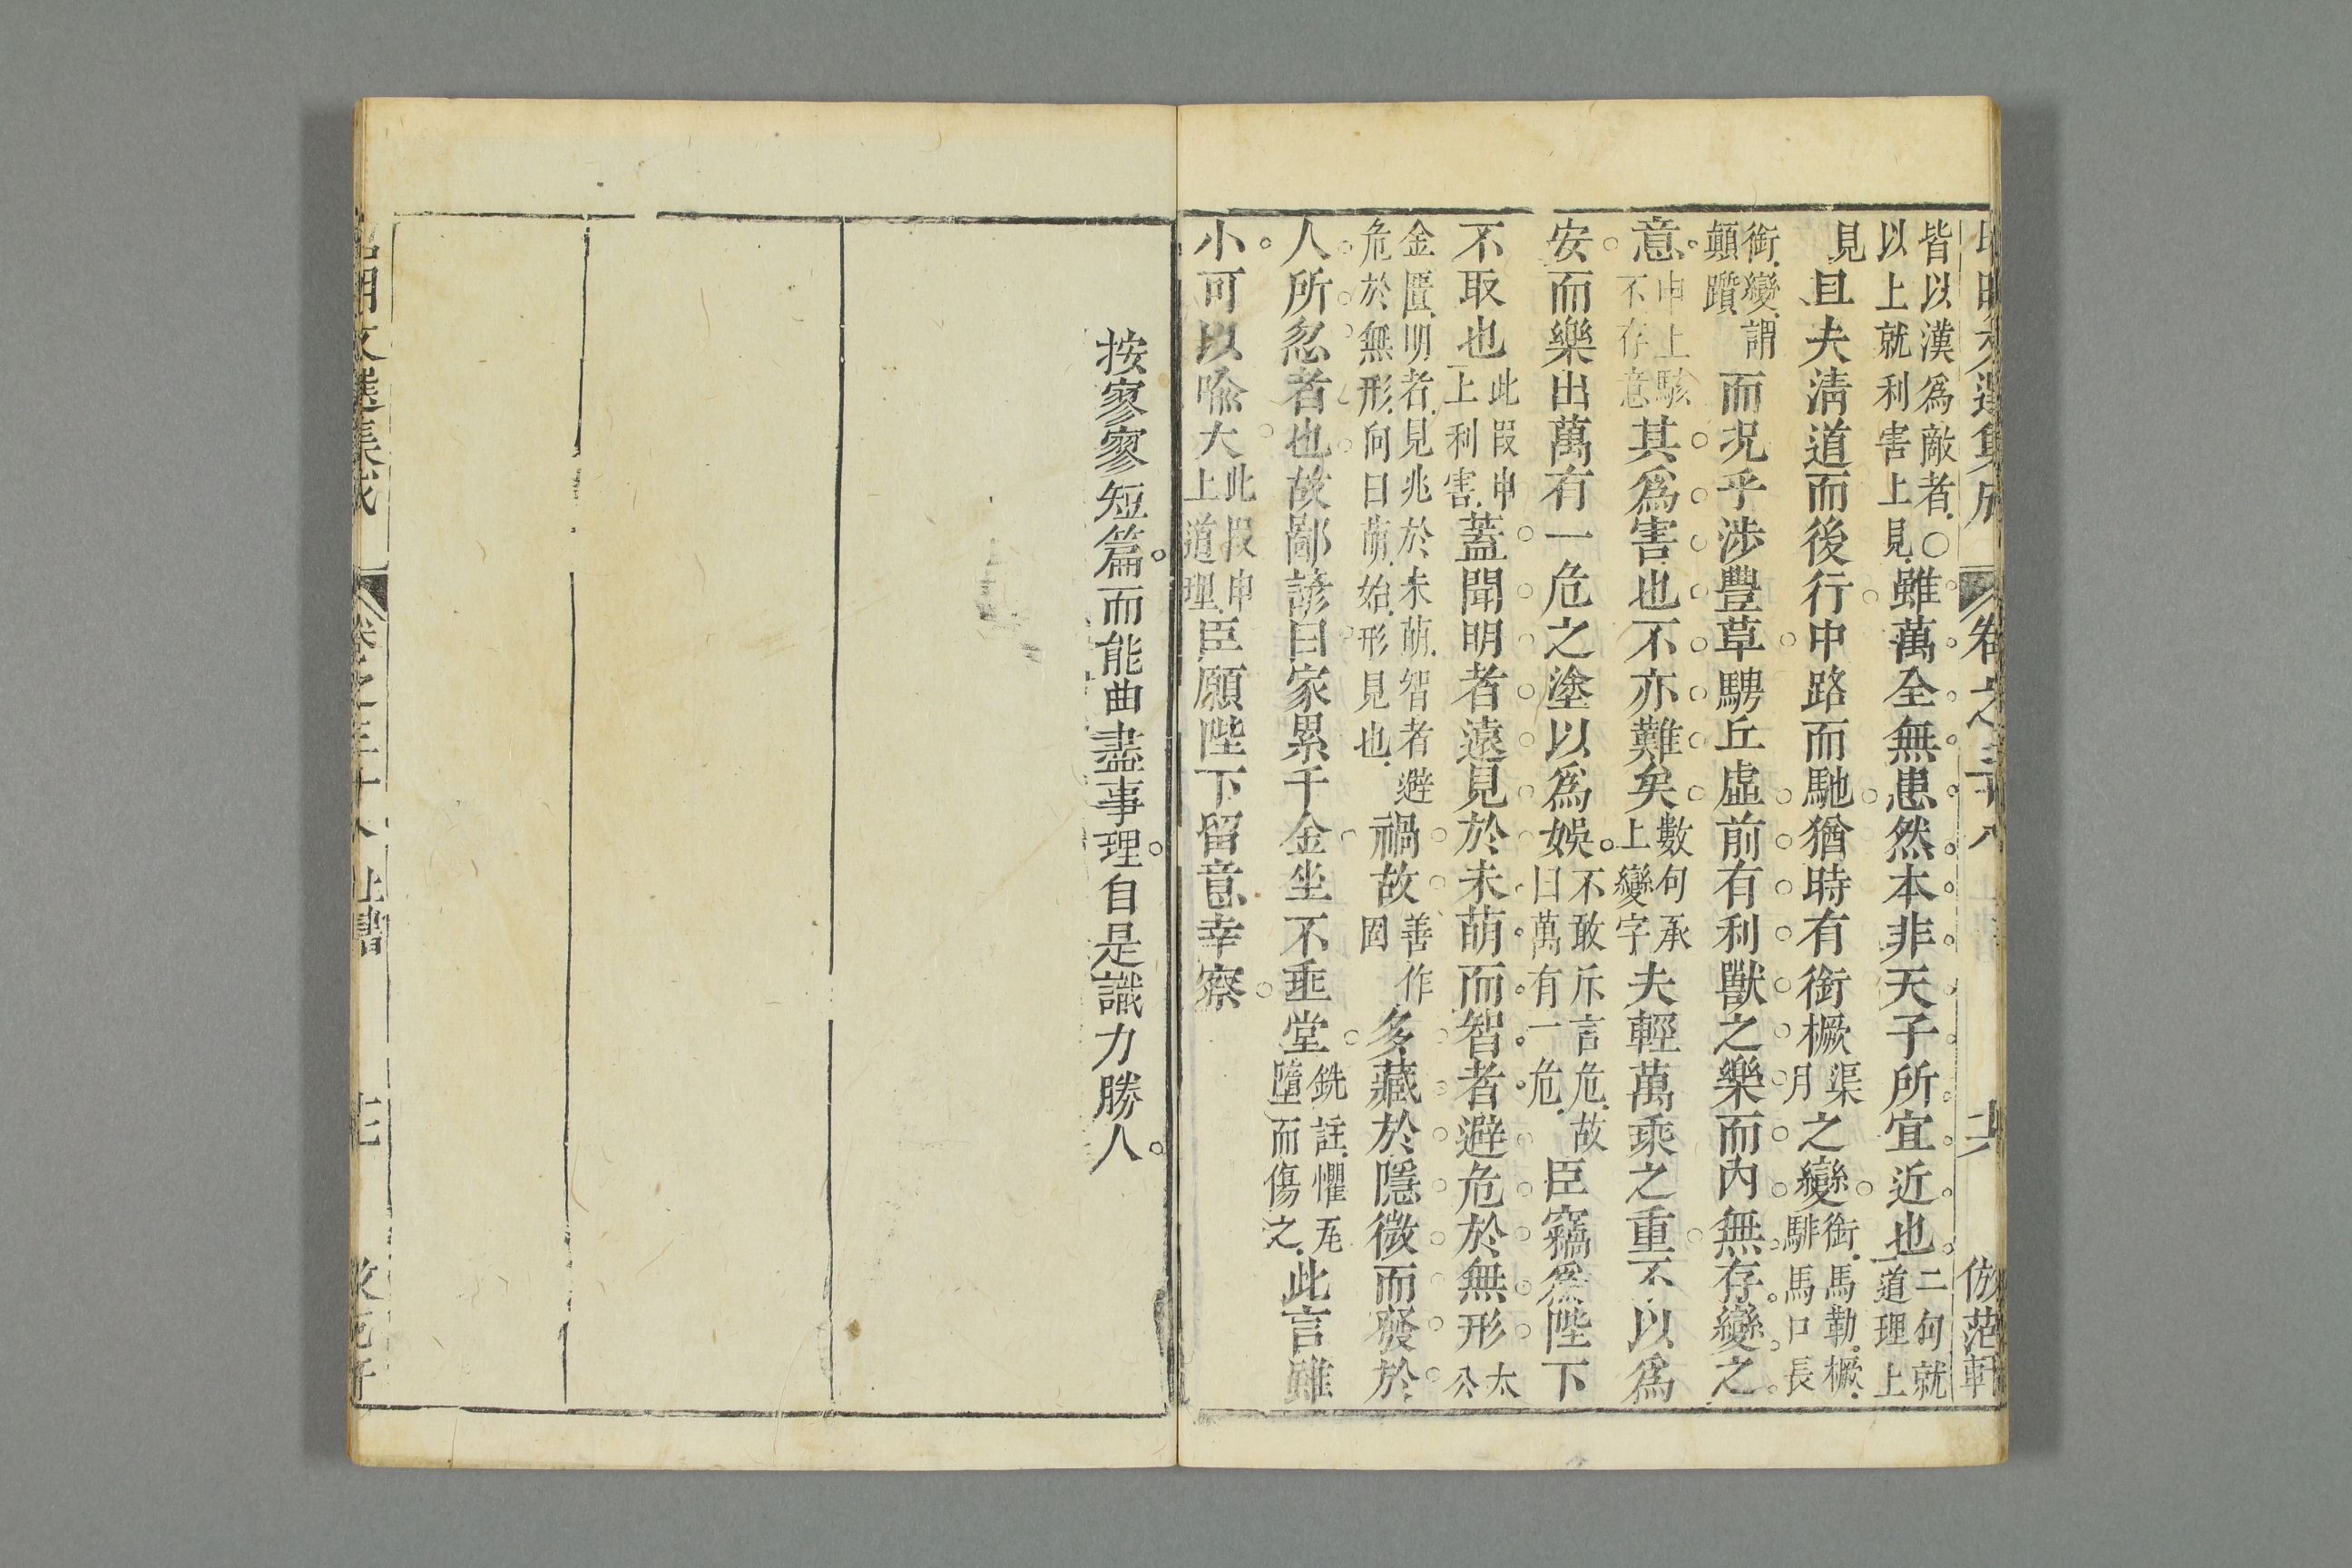 昭明文選集成 卷之三十八 倣范軒
皆以漢爲敵者○以上就利害上見雖萬全無患然本非天子所宜近也二句就道理上
見且夫清道而後行中路而馳猶時有銜橛渠月之變銜馬勒橛騑馬口長
銜變謂顛躓而况乎涉豐草騁丘虛前有利獸之樂而內無存變之
意申上駭不存意其爲害也不亦難矣數句承上變字夫輕萬乘之重不以爲
安而樂出萬有一危之塗以爲娛不敢斥言危故曰萬有一危臣竊爲陛下
不取也此段申上利害蓋聞明者遠見於未萌而智者避危於無形太公
金匱明者見兆於未萌智者避危於無形向曰萌始形見也禍故善作固多藏於隱微而發於
人所忽者也故鄙諺曰家累千金坐不垂堂銑註懼瓦墮而傷之此言雖
小可以喻大此段申上道理臣願陛下留意幸察
按寥寥短篇而能曲盡事理自是識力勝人
昭明文選集成 卷之三十八 上書